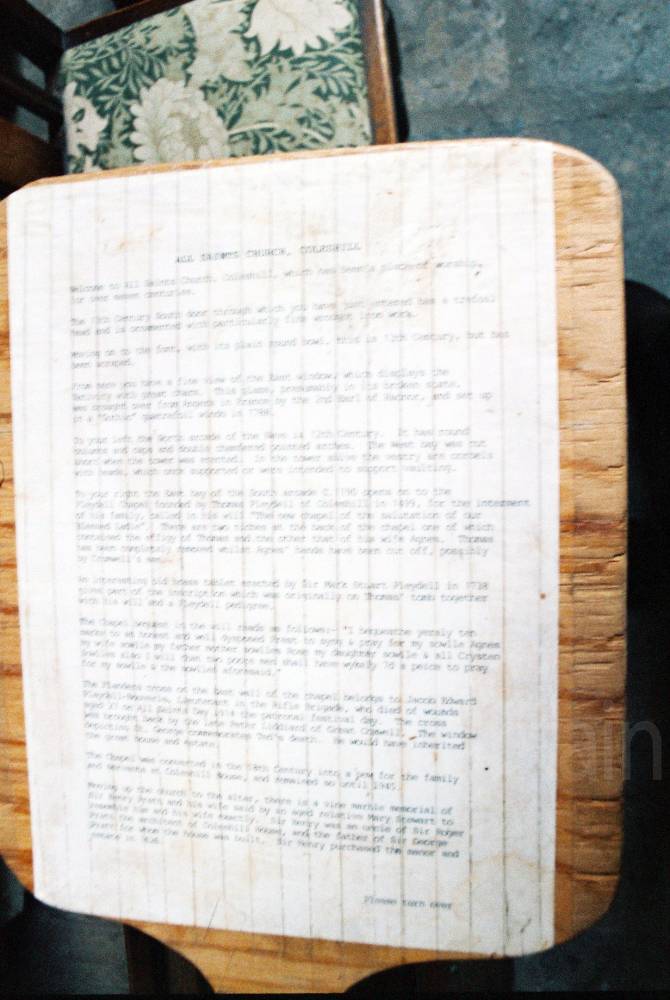 ALL SAINTS CHURCH, COLESHILL
Welcome to All Saints Church, Coleshill, which has been a place of worship,
for over seven centuries.
The 15th Century South door through which you have just entered has a trefoil
head and is ornamented with particularly fine wrought iron work.
Moving on to the font, with its plain round bowl, this is 12th Century, but has
been scraped.
From here you have a fine view of the East window, which displays the
Nativity with great charm. This glass, presumably in its broken state,
was brought over from Angers in France by the 2nd Earl of Radnor, and set up
in a "Gothic" quatrefoil window in
To your left the North arcade of the Nave is 12th Century. It has round
columns and caps and double chamfered pointed arches. The West bay was cut
short when the tower was erected. In the tower above the vestry are corbels
with heads, which once supported or were intended to support vaulting.
To your right the East bay of the South arcade opens on to the
Pleydell Chapel founded by Thomas Pleydell of Coleshill in 1499, for the interment
of his family, called in his will "The new chapel of the salutation of our
Blessed Ladie". There are two niches at the back of the chapel one of which
contained the effigy of Thomas and the other that of his wife Agnes. Thomas
has been completely removed whilst Agnes' hands have been cut off, possibly
by Cromwell's men.
An interesting old brass tablet erected by Sir Mark Stuart Pleydell in
gives part of the inscription which was originally on Thomas' tomb together
with his will and a Pleydell pedigree.
The Chapel bequest in the will reads as follows:- "I bequeathe yearly ten
marks to an honest and well dysposed Priest to syng & pray for my sowle Agnes
my wife sowle my father mother sowles Rose my daughter sowle & all Crysten
Sowles also I will that two poore men shall have wykely 7d a peice to pray
for my sowle & the sowlles aforesaid."
The Flanders cross on the East wall of the chapel belongs to Jacob Edward
Pleydell-Bouverie, Lieutenant in the Rifle Brigade, who died of wounds
aged on All Saints Day 1914 the patronal festival day. The cross
was brought back by the late Father Liddiard of Great Coxwell. The window
depicting St. George commemorates Ted's death. He would have inherited
the great house and estate.
The Chapel was converted in the 18th Century into a pew for the family
and servants at Coleshill House, and remained so until 1945.
Moving up the church to the altar, there is a fine marble memorial of
Sir Henry Pratt and his wife said by an aged relative Mary Stewart to
resemble him and his wife exactly. Sir Henry was an uncle of Sir Roger
Pratt the architect of Coleshill House, and the father of Sir George
Pratt for whom the house was built. Sir Henry purchased the manor and
estate in
Please turn over
ain